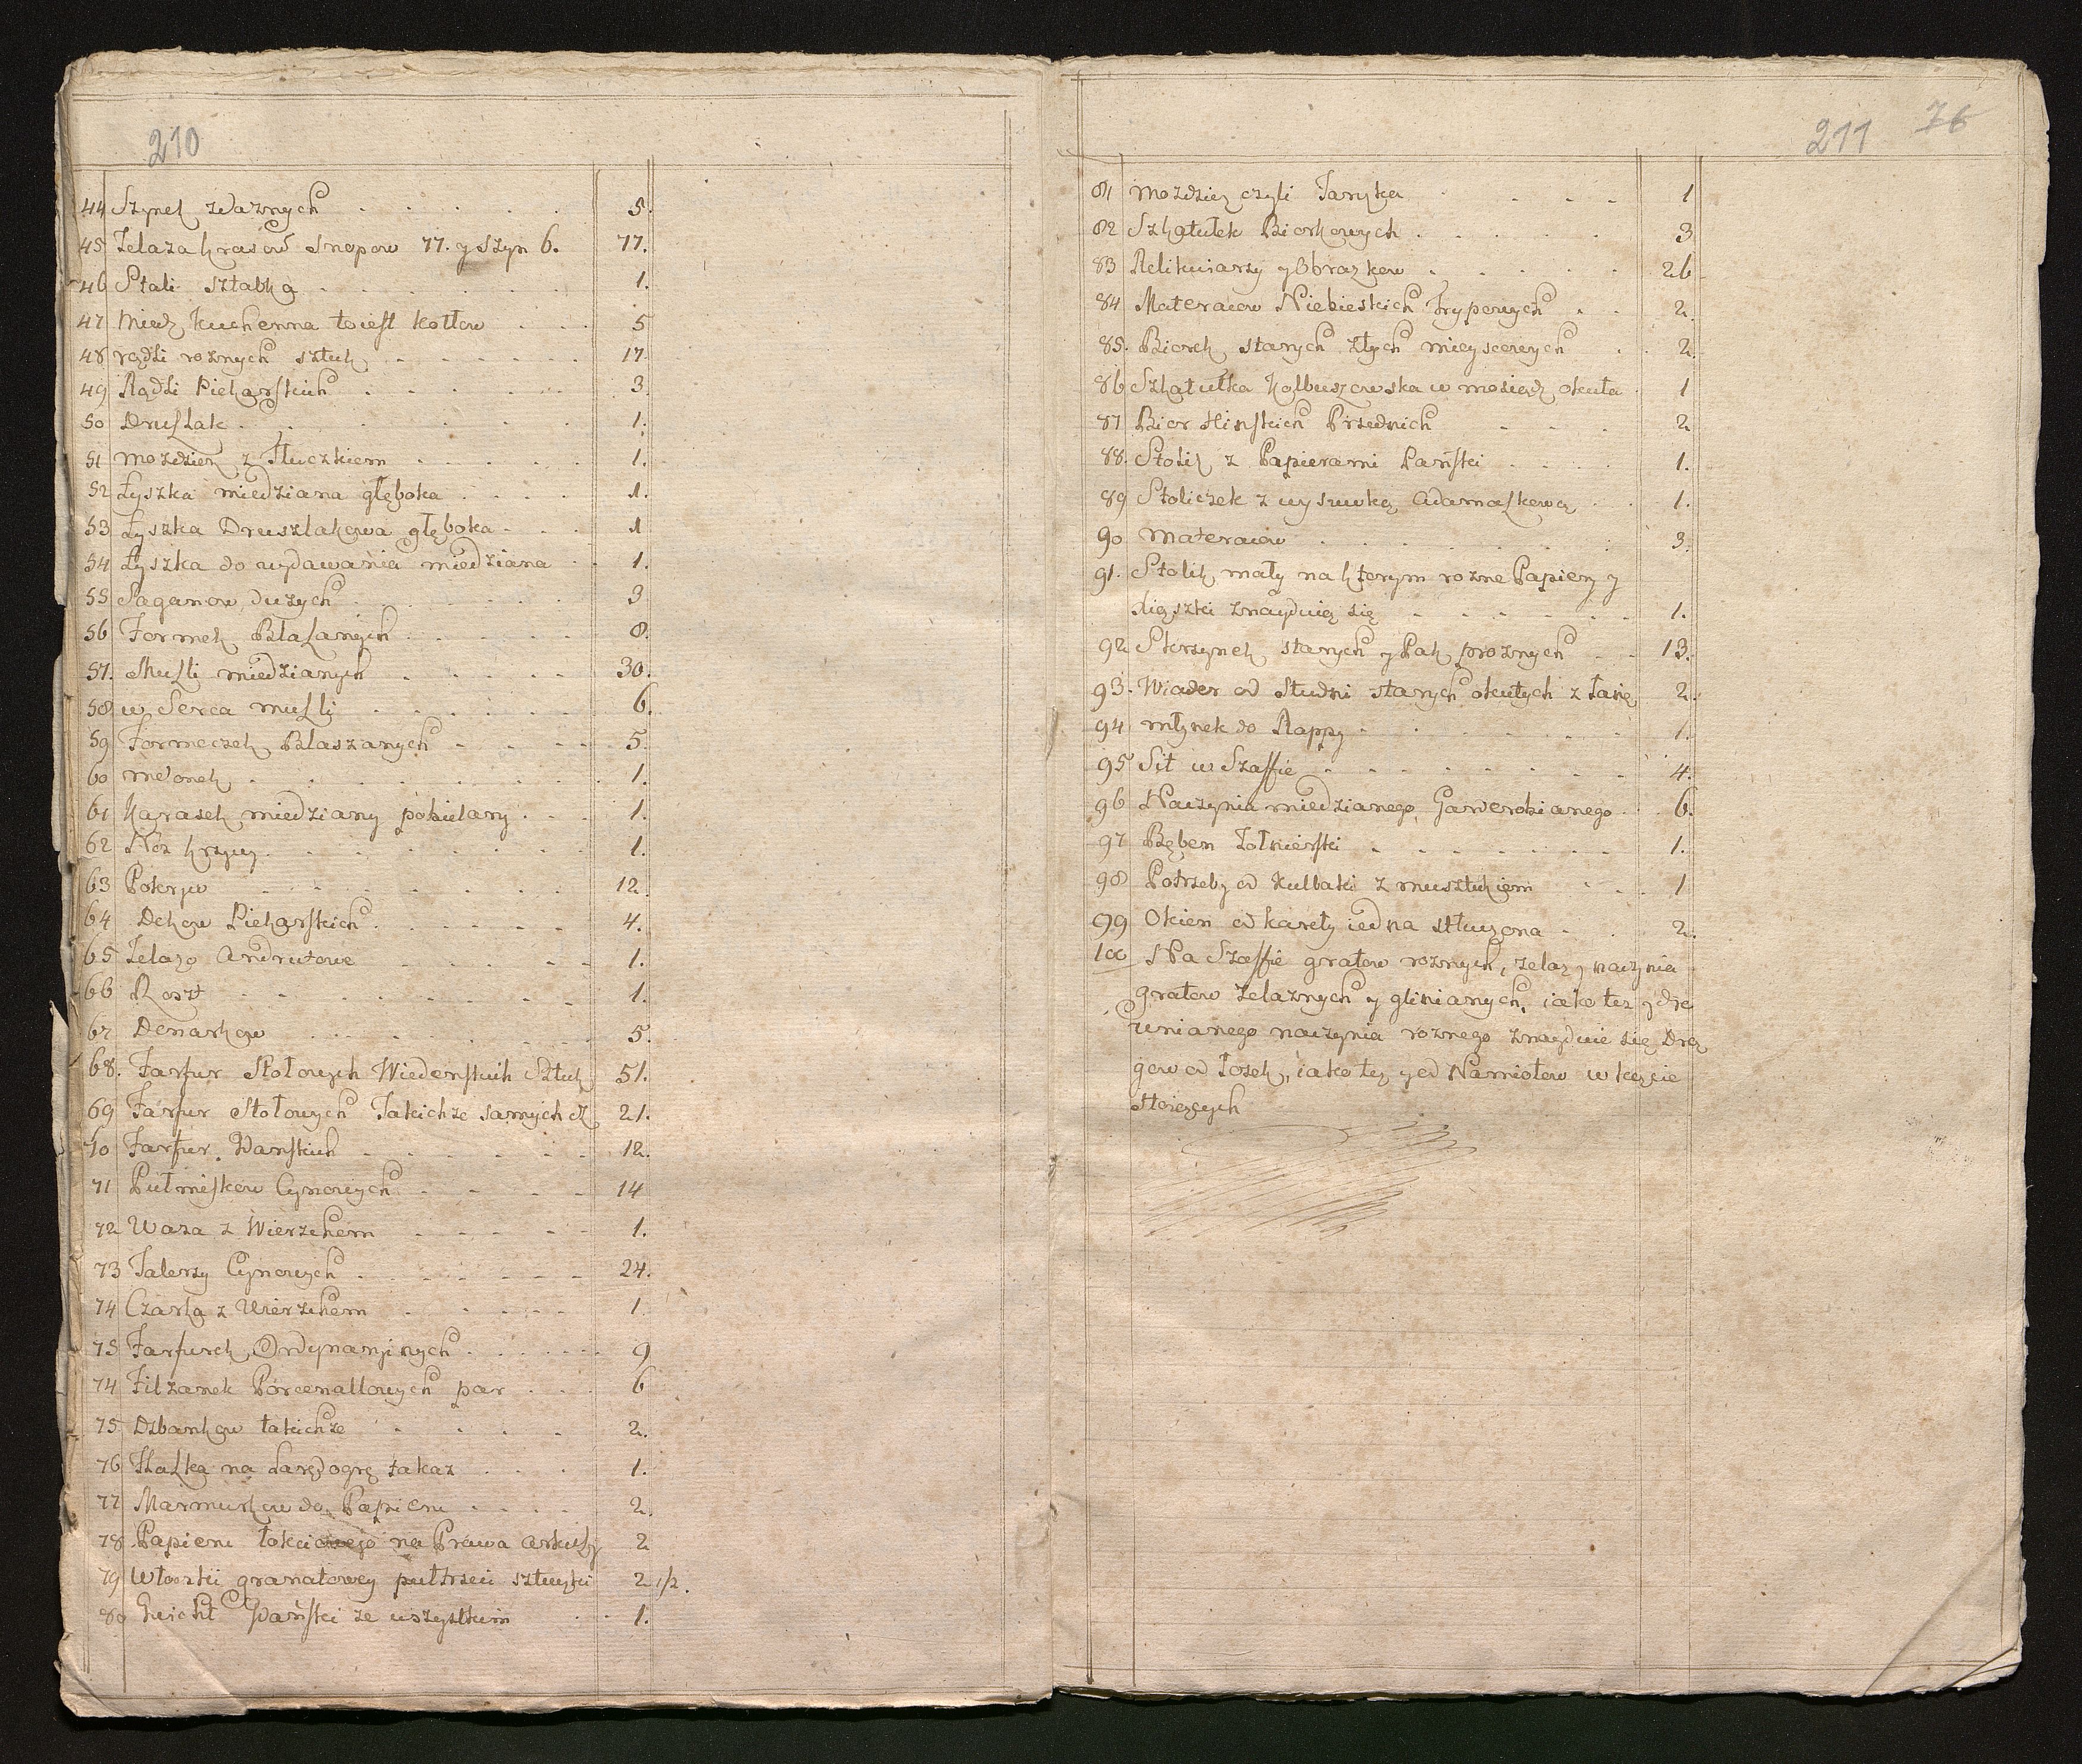 210
44 Szynek zelaznych 5.
45 Zelaza krasow Snopow 77. y Szyn 6. 77.
46 Stali sztabka 1.
47 Miedz kuchenna toiest kotłow 5
48 rądli roznych sztuk 17.
49 Rądli Piekarskich 3.
50 Druslak 1.
51 mozdzież z Tłuczkiem 1.
52 Łyszka miedziana głęboka 1.
53 Łyszka Druszlakowa głęboka 1
54 Łyszka do wydawania miedziana 1.
55 Saganow duzych 3
56 Formek Blaszanych 8.
57. Muszli miedzianych 30.
58 w Serca muszli 6.
59 Formeczek Blaszanych 5.
60 1.
61 Karasek miedziany pobielany 1.
62 Noz krzywy 1.
63 Pokryw 12.
64 Dekow Piekarskich 4.
65 Zelazo Andrutowe 1.
66 Roszt 1.
67 Denarkow 5.
68. Farfur Stołowych Wiedenskich Sztuk 51.
69 Farfur Stołowych Takichze samych 21.
70 Farfur. Gdanskich 12.
71 Pułmiskow Cynowych 14
72 Waza z Wierzchem 1.
73 Talerzy Cynowych 24.
74 Czarka z Wierzchem 1
75 Farfurek Ordynaryinych 9
74 Filzanek Porcenallowych par 6
75 Dzbankow takichze 2.
76 na takaz 1.
77 Marmurkow do Papieru 2.
78 Papieru na Prawa Arkuszy 2
79 Włoczki granatowey pułtrzeci sztuczki 2 1/2.
80 Gwicht Gdański ze wszystkim 1.
211 76
81 mozdziez czyli Taryka 1
82 Szkatułek Biorkowych 3
83 Relikwiarzy y Obrazkow 26
84 Materacow Niebieskich Trypowych 2.
85. Biorek starych złych mieyscowych 2.
86 Szkatułka Kolbuszowska w mosiądz okuta 1
87 Bior Hinskich Przednich 2
88. Stolik z Papierami Pański 1.
89 Stoliczek z wysuwką Adamaszkową 1.
90 Materacow 3.
91. Stolik mały na ktorym rozne Papiery y
sięszki znayduią się 1.
92 Skrzynek starych y Pak proznych 13.
93. Wiader od Studni starych okutych z 2.
94 młynek do Rappy 1.
95 Sit w Szaffie 4.
96 Naczynia miedzianego, 6.
97 Bęben Zołnierski 1.
98 Potrzeby od Kulbaki z musztukiem 1
99 Okien od karety iedna stłuczona 2.
100 Na Szaffie gratow roznych, zelaz y naczynia
gratow zelaznych y glinianych, iako tez y dre
wnianego naczynia roznego znayduie się Drą
gow od Łozek, iako tez y od Namiotow w kącie
stoiących